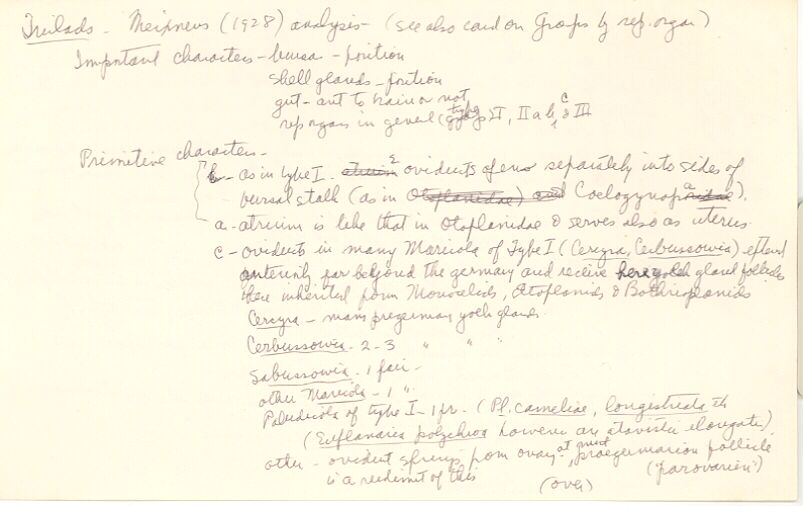 Triclads - Meixner's (1928) analysis - (see also card on Groups by rep. organ)
Important characters - bursa - position
shell glands - position
gut - ant to brain or not
rep organs in general (type I, II a b, c & III
Primitive characters -
b - as in type I. atrium 2 oviducts open separately into sides of
bursal stalk (as in Otoplanidae) and Coelogynopora).
a - atrium is like that in Otoplanidae & serves also as uterus.
c - oviducts in many Maricola of Type I (Cercyra, Cerbussowia) extend
anteriorly far beyond the germary and receive here yolk gland follicles
these inherited from Monocelids, Otoplanids & Bothrioplanids
Cercyra - many pregermary yolk glands.
Cerbussowia - 2-3 " " "
Sabussowia - 1 pair -
other Maricola - 1 "
Paludicola of type I - 1 pr. (Pl. cameliae, longistriata
(Euplanaria polychroa however an atavistic elongate)
other - oviduct springs from ovary, at most praegermarian follicle
is a rudiment of this (over) ("parovarien")